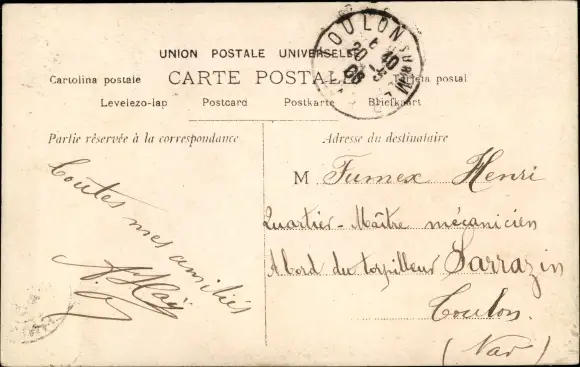 UNION POSTALE UNIVERSELLE
CARTE POSTALE
Cartolina postale
Tarjeta postal
Levelezo-lap Postcard Postkarte Briefkaart
TOULON SUR MER
6 40
20 -3
08
VAR
Partie réservée à la correspondance
Adresse du destinataire
Toutes mes amitiés
M Fumex Henri
Quartier-Maître mécanicien
A bord du torpilleur Sarrazin
Toulon.
(Var)